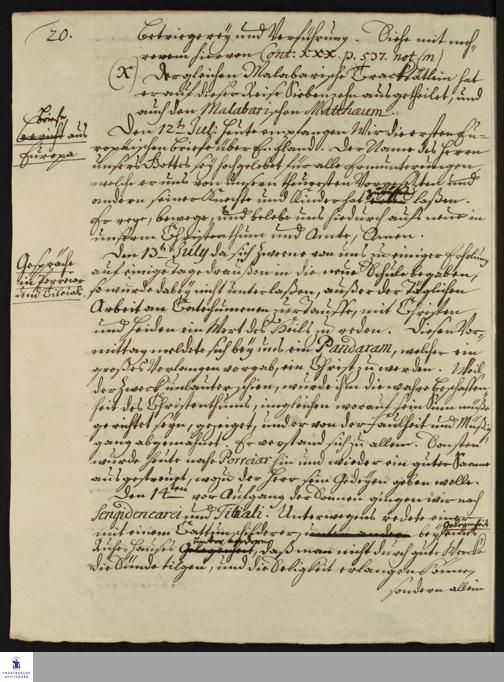 20.
Betriegerey und Verführung. Siehe mit meh-
rerem hiervon Cont: XXX. p. 537. not (m)
(X) Dergleichen Malabarische Tracktätlein hat
er auf dieser Reise Siebenzehn ausgetheilet, und
auch den Malabarischen Matthæum.
Briefe
aus
Europa
Den 12ten Juli heute empfangen wir die ersten Eu-
ropäischen Briefe über England. Der Name des Herrn
unsers Gottes sey hochgelobet für alle Ermunterungen,
welche er uns von unsern theuersten Vorgesetzten und
andern seiner Knechte und Kinder hat laßen.
Er rege, bewege, und belebe uns hiedurch aufs neue in
unserm Christenthum und Amte, Amen.
Gespräche
in Porreiar
und Tilleiali.
Den 13ten July da sich zweene von uns zu einiger Erholung
auf einige Tage draußen in die neue Schule begaben,
so wurde dabey nicht unterlaßen, außer der täglichen
Arbeit an Catechumenen zur Tauffe, mit Christen
und Heiden ein Wort des Heils zu reden. Diesen Vor-
mittag meldete sich bey uns ein Pandaram, welcher ein
großes Verlangen vorgab, ein Christ zu werden. Weil
der Zweck unlauter schien, wurde ihm die wahre Beschaffen-
heit des Christenthums, imgleichen worauf sein Sinn müße
gerichtet seyn, gezeiget, und er von der Faulheit und Müßig-
gang abgemahnet. Er verstand sich zu allem. Sonsten
wurde heute nahe Porreiar hin und wieder ein guter Saame
ausgestreuet, wozu der Herr sein Gedeyen geben wolle.
Den 14ten vor Aufgang der Sonnen gingen wir nach
Sengidencarei und Tilleiali. Unterweges redete einer
mit einem Cattun, bey
Ruhe-Hauses Gelegenheit, daß man nicht durch gute Wercke
die Sünde tilgen, und die Seligkeit erlangen könne,
sondern allein
FRANCKESCHE
STIFTUNGEN